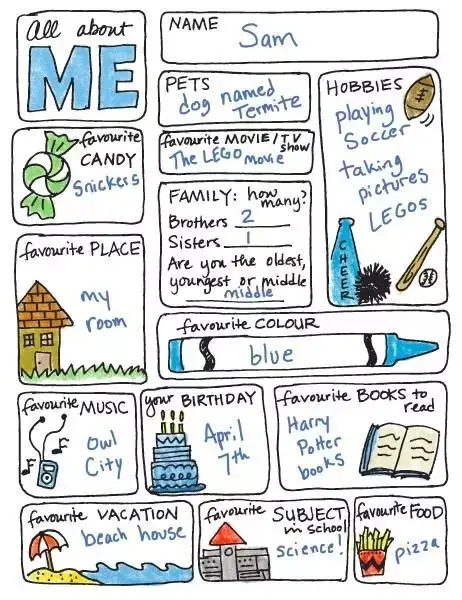 All about
ME
NAME
Sam
PETS
dog named
Termite
HOBBIES
playing
Soccer
taking
pictures
LEGOs
CHEER
favourite
CANDY
Snickers
favourite MOVIE/TV
show
The LEGO movie
FAMILY: how
many?
Brothers 2
Sisters 1
Are you the oldest,
youngest or middle
middle
favourite PLACE
my
room
favourite COLOUR
blue
favourite MUSIC
Owl
City
your BIRTHDAY
April
7th
favourite BOOKS to
read
Harry
Potter
books
favourite VACATION
beach house
favourite SUBJECT
in school
science!
favourite FOOD
pizza